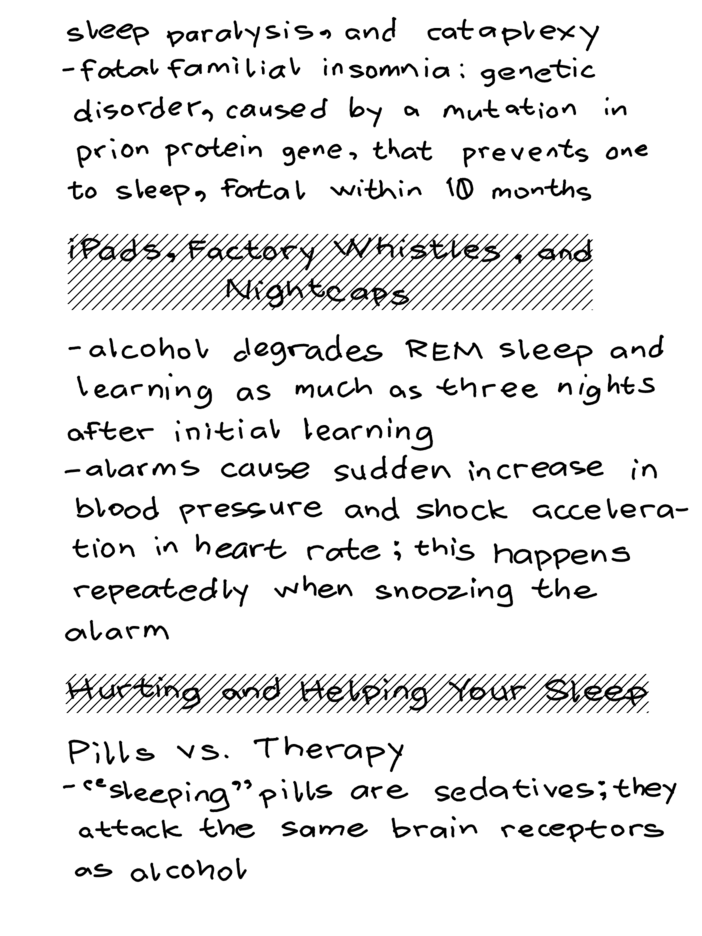 sleep paralysis, and cataplexy
-fatal familial insomnia: genetic
disorder, caused by a mutation in
prion protein gene, that prevents one
to sleep, fatal within 10 months
iPads, Factory Whistles, and
Nightcaps
-alcohol degrades REM sleep and
learning as much as three nights
after initial learning
-alarms cause sudden increase in
blood pressure and shock accelera-
tion in heart rate; this happens
repeatedly when snoozing the
alarm
Hurting and Helping Your Sleep
Pills vs. Therapy
-“sleeping” pills are sedatives; they
attack the same brain receptors
as alcohol